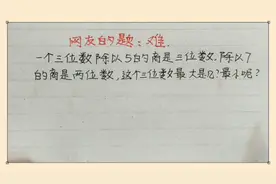 网友的题：难.
一个三位数除以5的商是三位数.除以7
的商是两位数,这个三位数最大是几?最小呢?